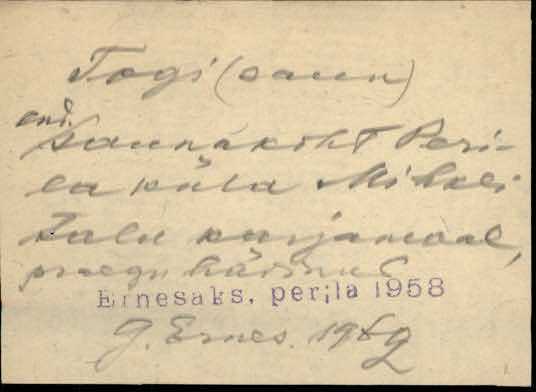 Togi (saun)
end.
saunakoht Peri-
la küla Mihkli
talu karjamaal,
praegu hävinud
Ernesaks, perila 1958
G. Ernes. 1969